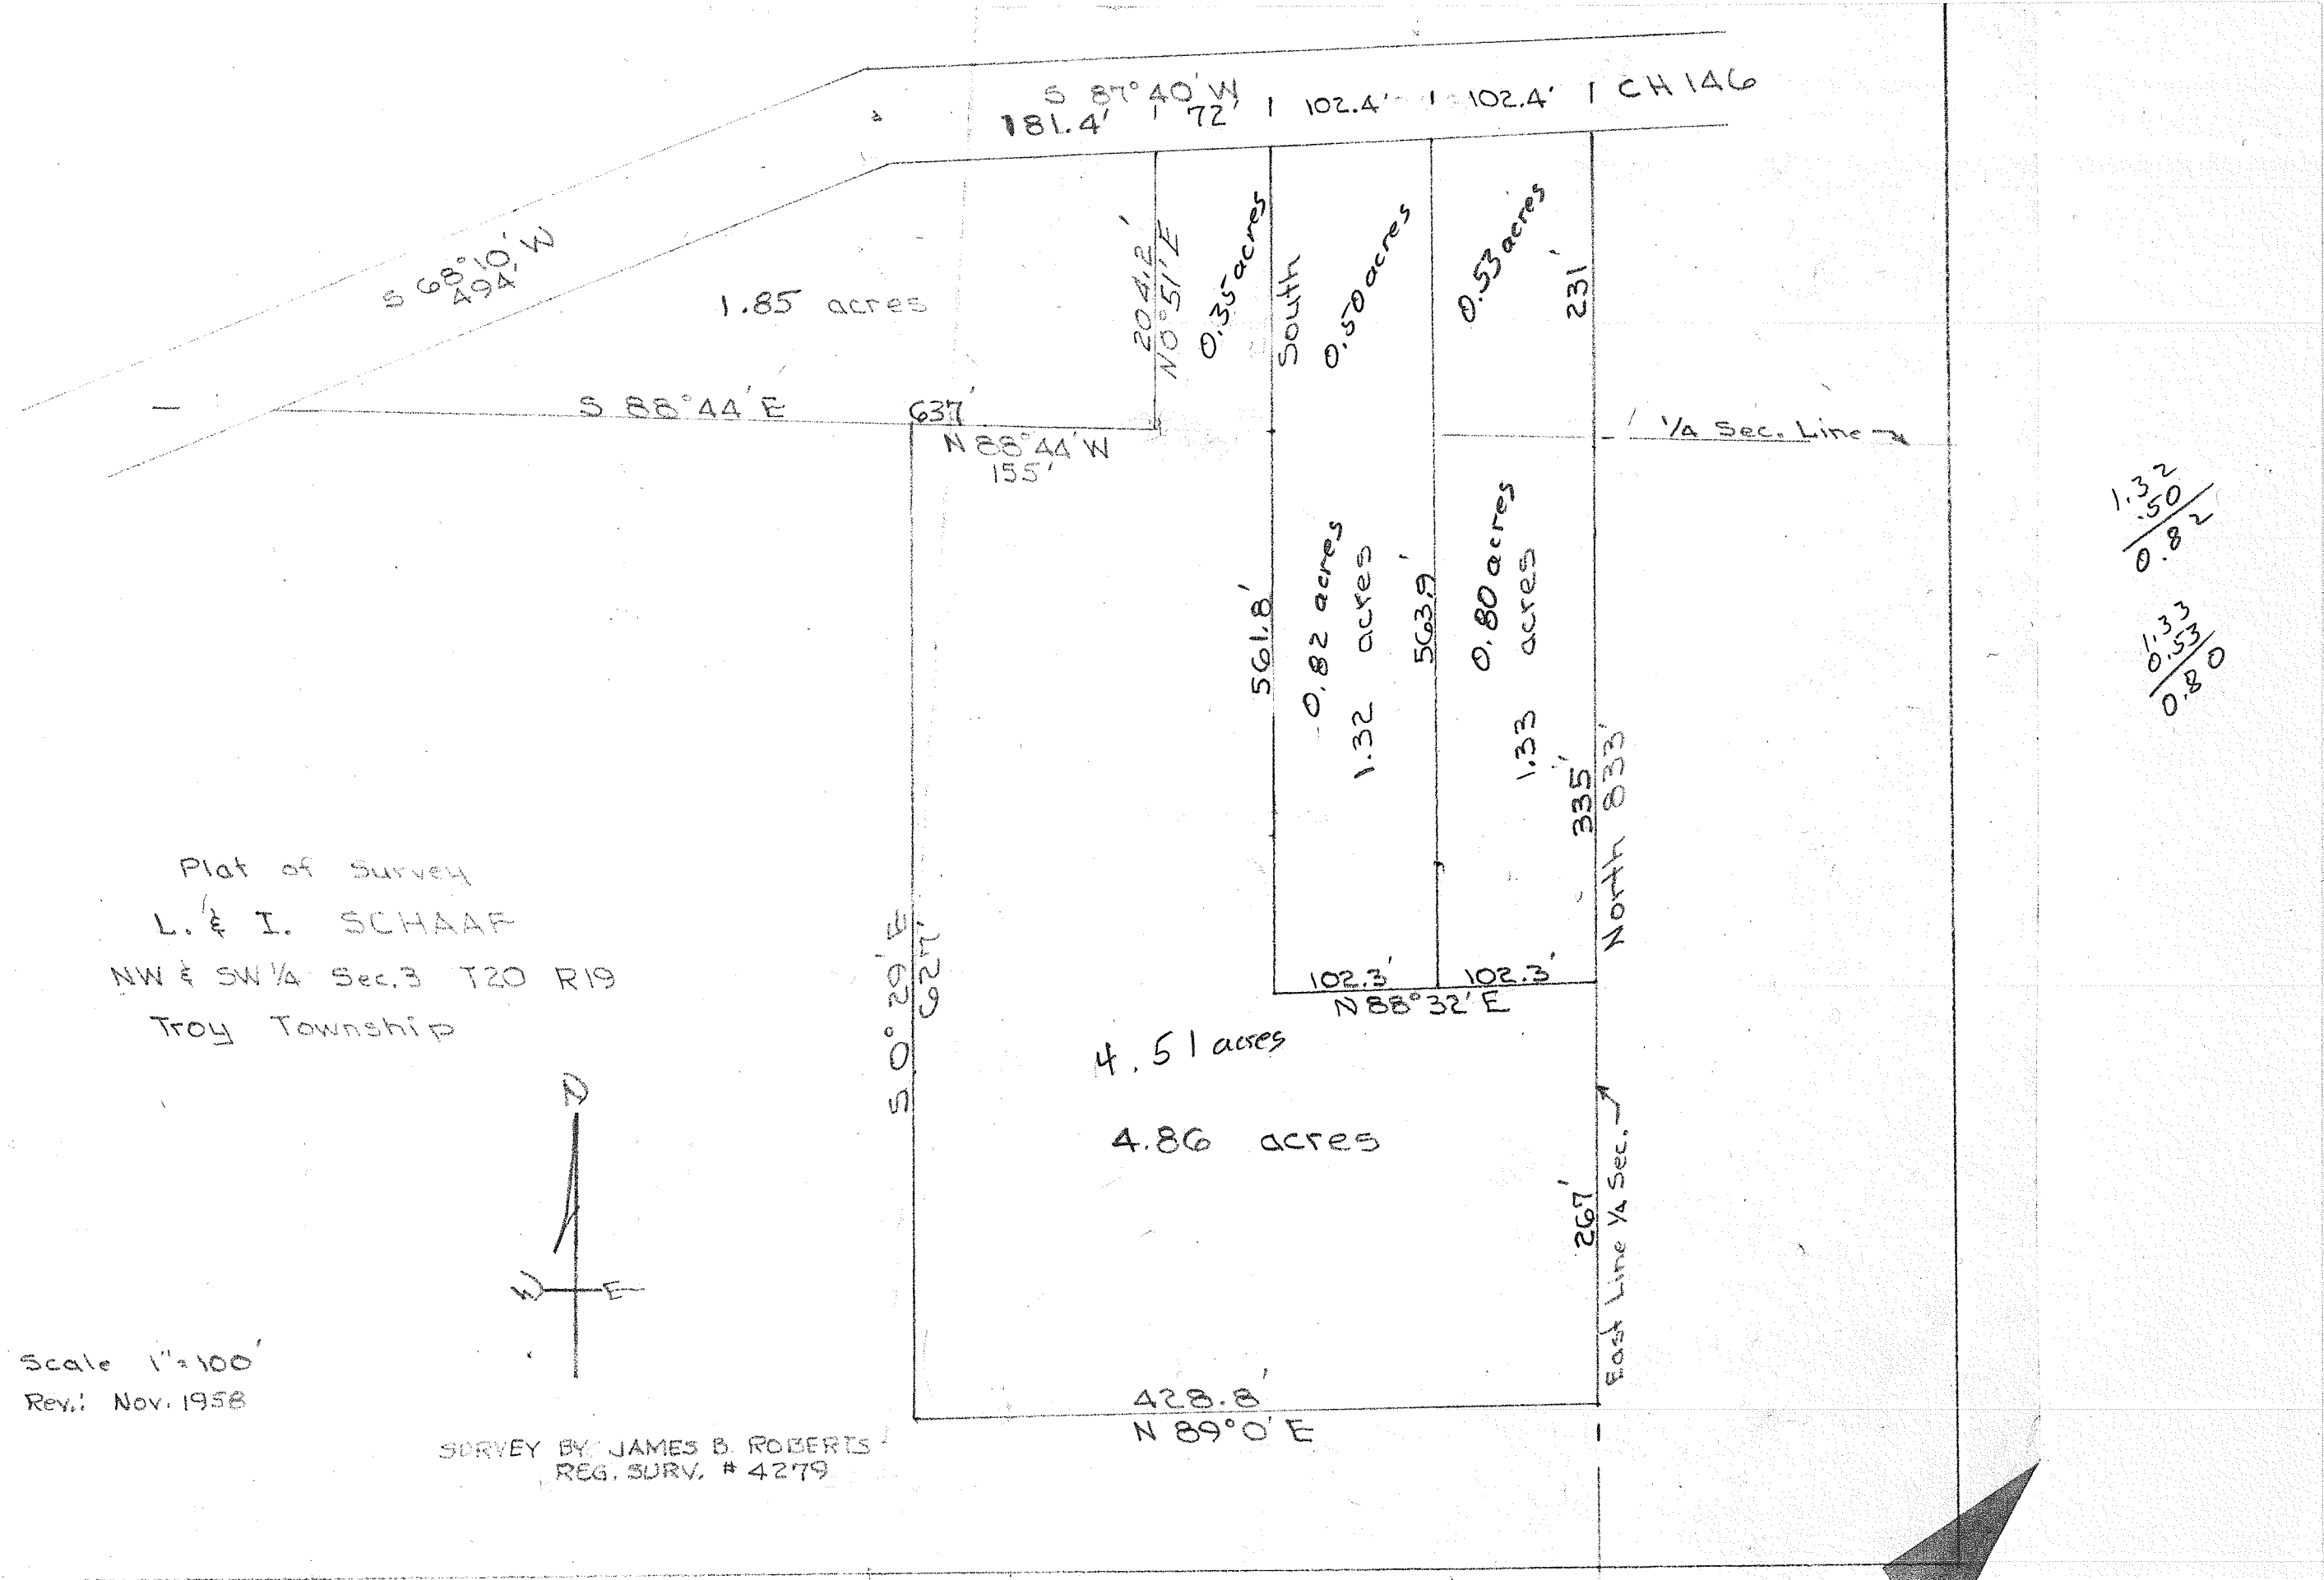 S 87°40' W
181.4' 72' 102.4' 102.4' CH 146
S 68°10' W
494'
1.85 acres
204.2'
N0°51'E
0.35 acres
South
0.50 acres
0.53 acres
231'
S 88°44' E 637'
N 88°44' W
155'
1/4 Sec. Line
1.32
.50
0.82
1.33
0.53
0.80
561.8'
0.82 acres
1.32 acres
563.9'
0.80 acres
1.33 acres
335'
North 833'
102.3' 102.3'
N 88°32' E
S 0°29' E
627'
4.51 acres
4.86 acres
267'
East Line 1/4 Sec.
428.8'
N 89°0' E
Plat of Survey
L. & I. SCHAAF
NW & SW 1/4 Sec.3 T20 R19
Troy Township
N
W E
Scale 1"=100'
Rev.: Nov. 1958
SURVEY BY: JAMES B. ROBERTS
REG. SURV. # 4279